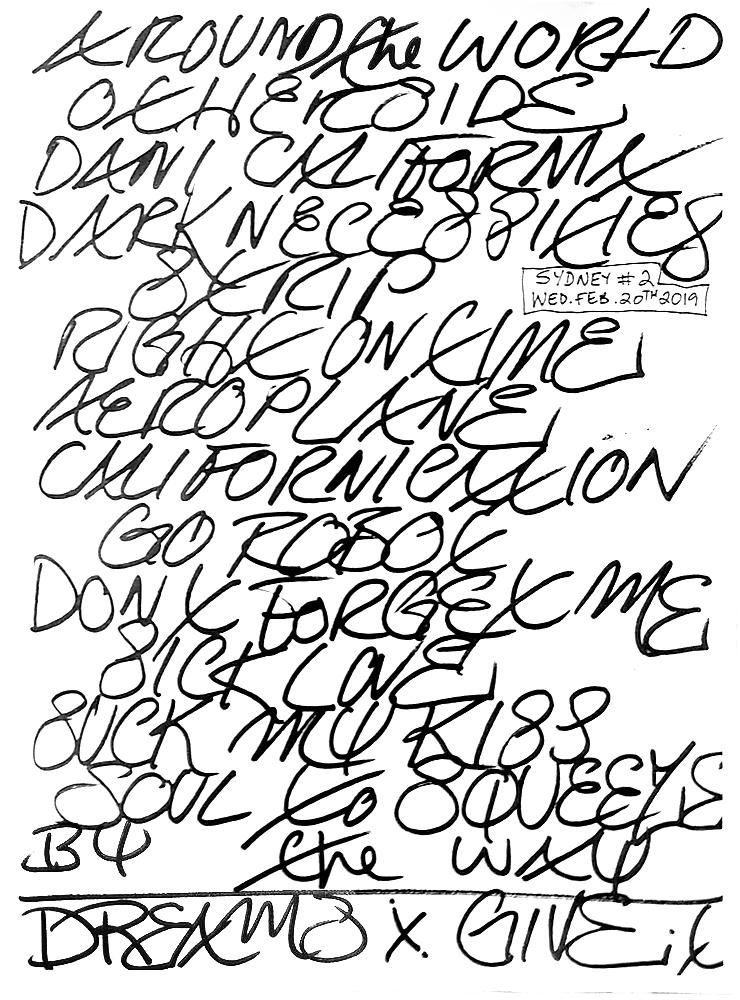 AROUND the WORLD
OTHERSIDE
DANI CALIFORNIA
DARK NECESSITIES
STRIP
SYDNEY # 2
WED.FEB.20TH 2019
RIGHT ON TIME
AEROPLANE
CALIFORNICATION
GO ROBOT
DONT FORGET ME
SICK LOVE
SUCK MY KISS
SOUL to SQUEEZE
BY the WAY
DREAMS GIVE it